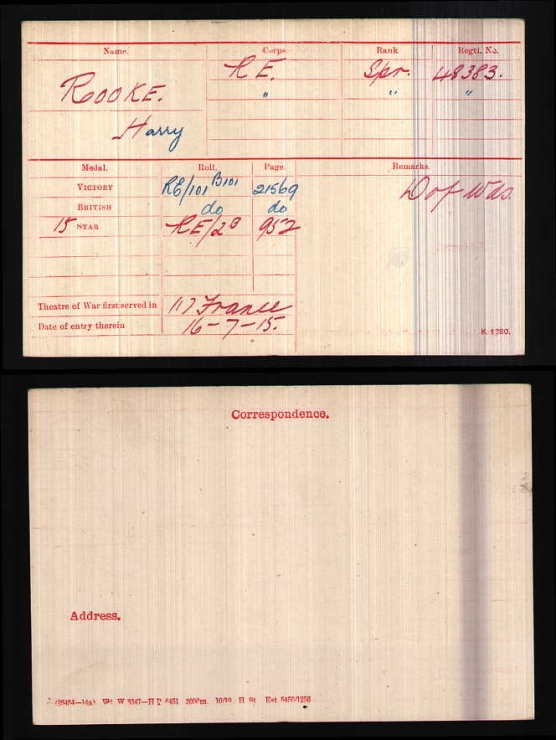 Name. Corps. Rank Regtl. No.
ROOKE. R.E. Spr. 48383.
" " "
Harry
Medal. Roll. Page. Remarks.
VICTORY RE/101 B101 21569 D of Wds.
BRITISH do do
15 STAR RE/2B 952
Theatre of War first served in (1) France
Date of entry therein 16-7-15.
K. 1380.
Correspondence.
Address.
W 5347—H P 2000m. 10/19 H St